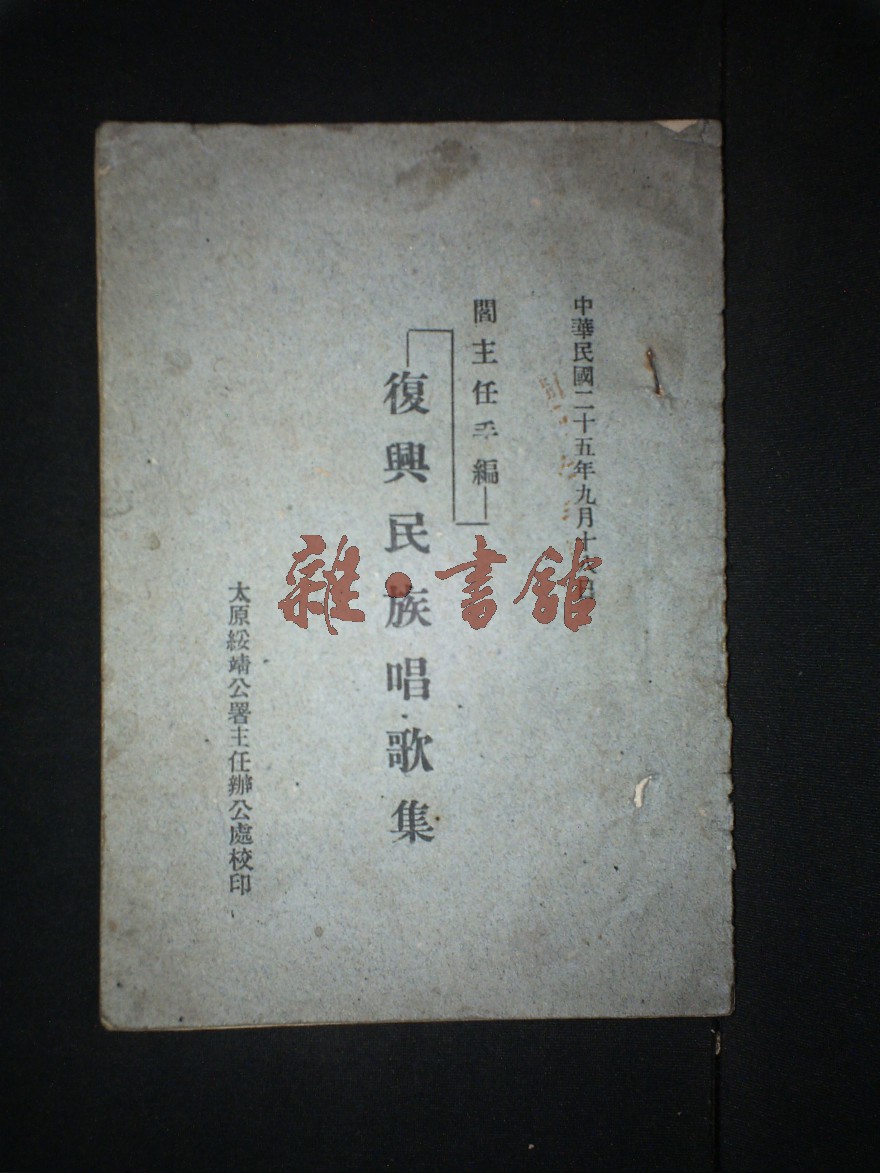 中華民國二十五年九月十
閻主任手編
復興民族唱歌集
太原綏靖公署主任辦公處校印
雜·書館